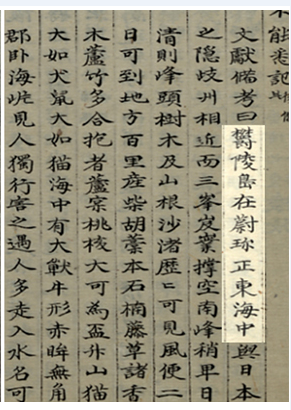 不能悉記
文獻備考曰欝陵島在蔚珍正東海中與日本
之隱歧州相近而三峯岌嶪撑空南峰稍卑日
清則峰頭樹木及山根沙渚歷〻可見風便二
日可到地方百里産柴胡藁本石楠藤草諸香
木蘆竹多合抱者蘆實桃核大可為盃升山猫
大如犬鼠大如猫海中有大獸牛形赤眸無角
郡卧海岸見人獨行害之遇人多走入水名可